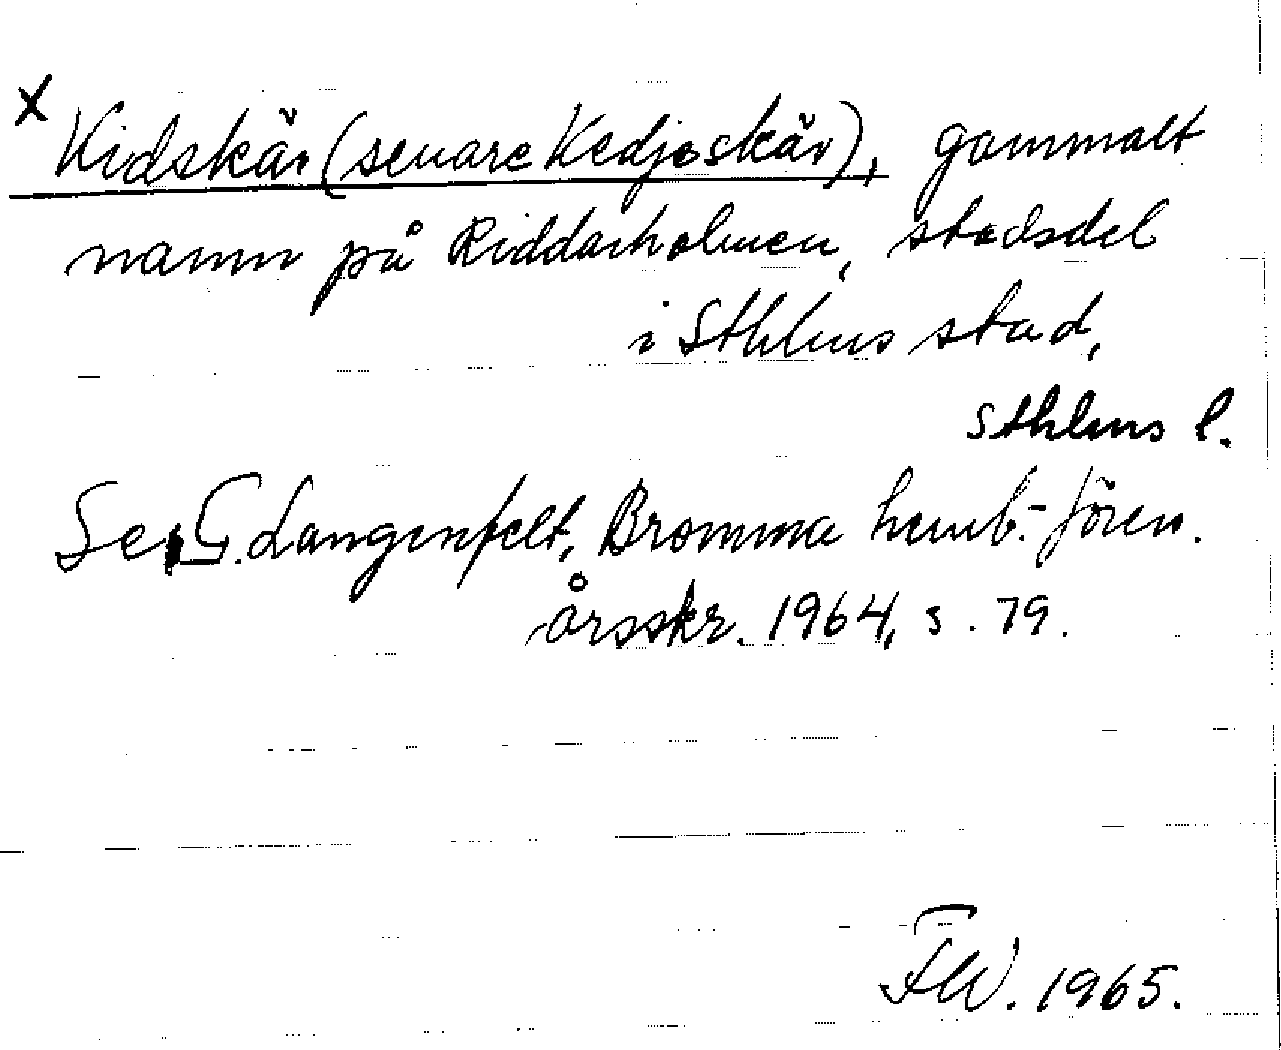 x Kidskär (senare Kedjeskär), gammalt
namn på Riddarholmen, stadsdel
i Sthlms stad,
Sthlms l.
Se G. Langenfelt, Bromma hemb.-fören.
årsskr. 1964, s. 79.
FW. 1965.